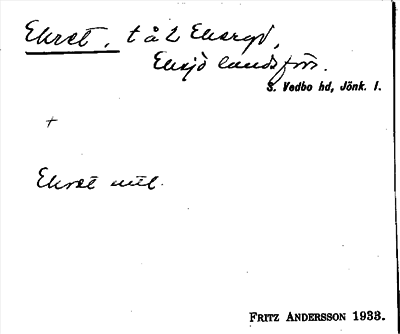 Ekret, t å 2 Ekaryd,
Eksjö landsförs.
S. Vedbo hd, Jönk. l.
+
Ekret mtl.
FRITZ ANDERSSON 1933.